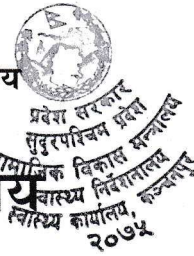 य
प्रदेश सरकार
सुदूरपश्चिम प्रदेश
सामाजिक विकास मन्त्रालय
स्वास्थ्य निर्देशनालय
य
स्वास्थ्य कार्यालय, कञ्चनपुर
२०७५